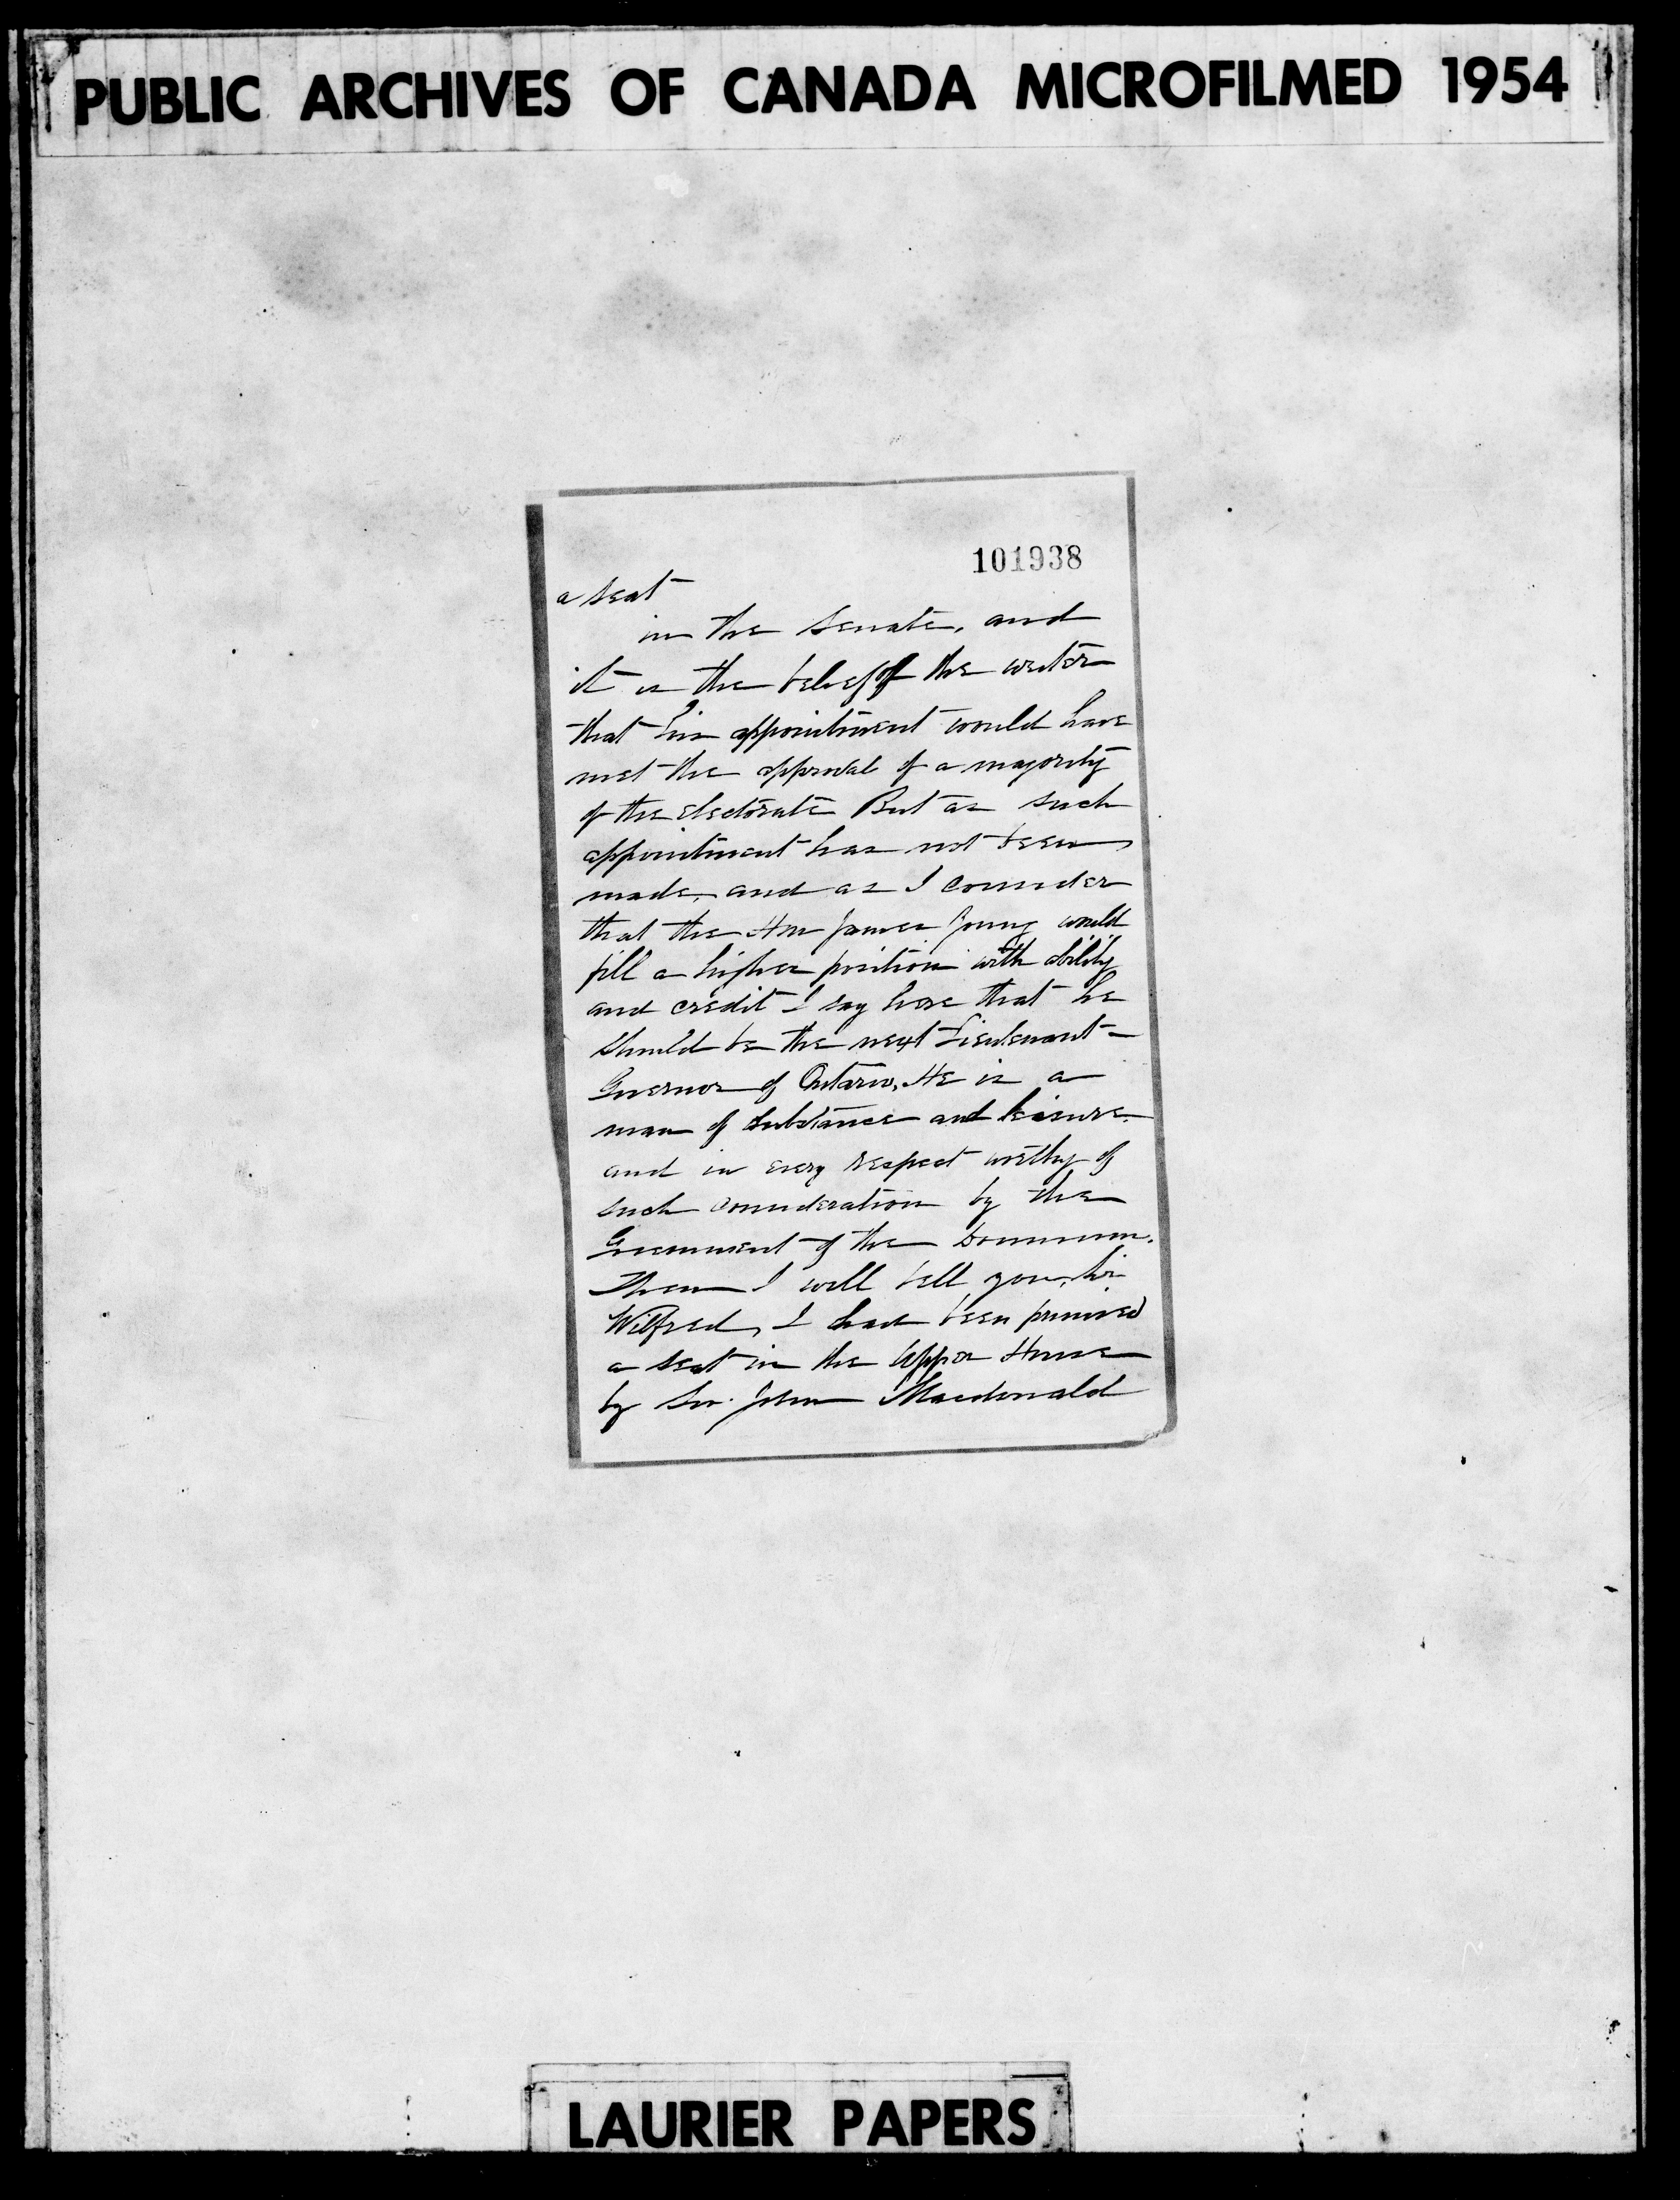 PUBLIC ARCHIVES OF CANADA MICROFILMED 1954
101938
a seat
in the Senate, and
it is the belief of the writer
that his appointment would have
met the approval of a majority
of the electorate But as such
appointment has not been
made, and as I consider
that the Hon James Young would
fill a higher position with ability
and credit I say here that he
should be the next Lieutenant-
Governor of Ontario, He is a
man of substance and leisure,
and in every respect worthy of
such consideration by the
Government of the Dominion.
Then I will tell you, Sir
Wilfred, I had been promised
a seat in the Upper House
by Sir John Macdonald
LAURIER PAPERS